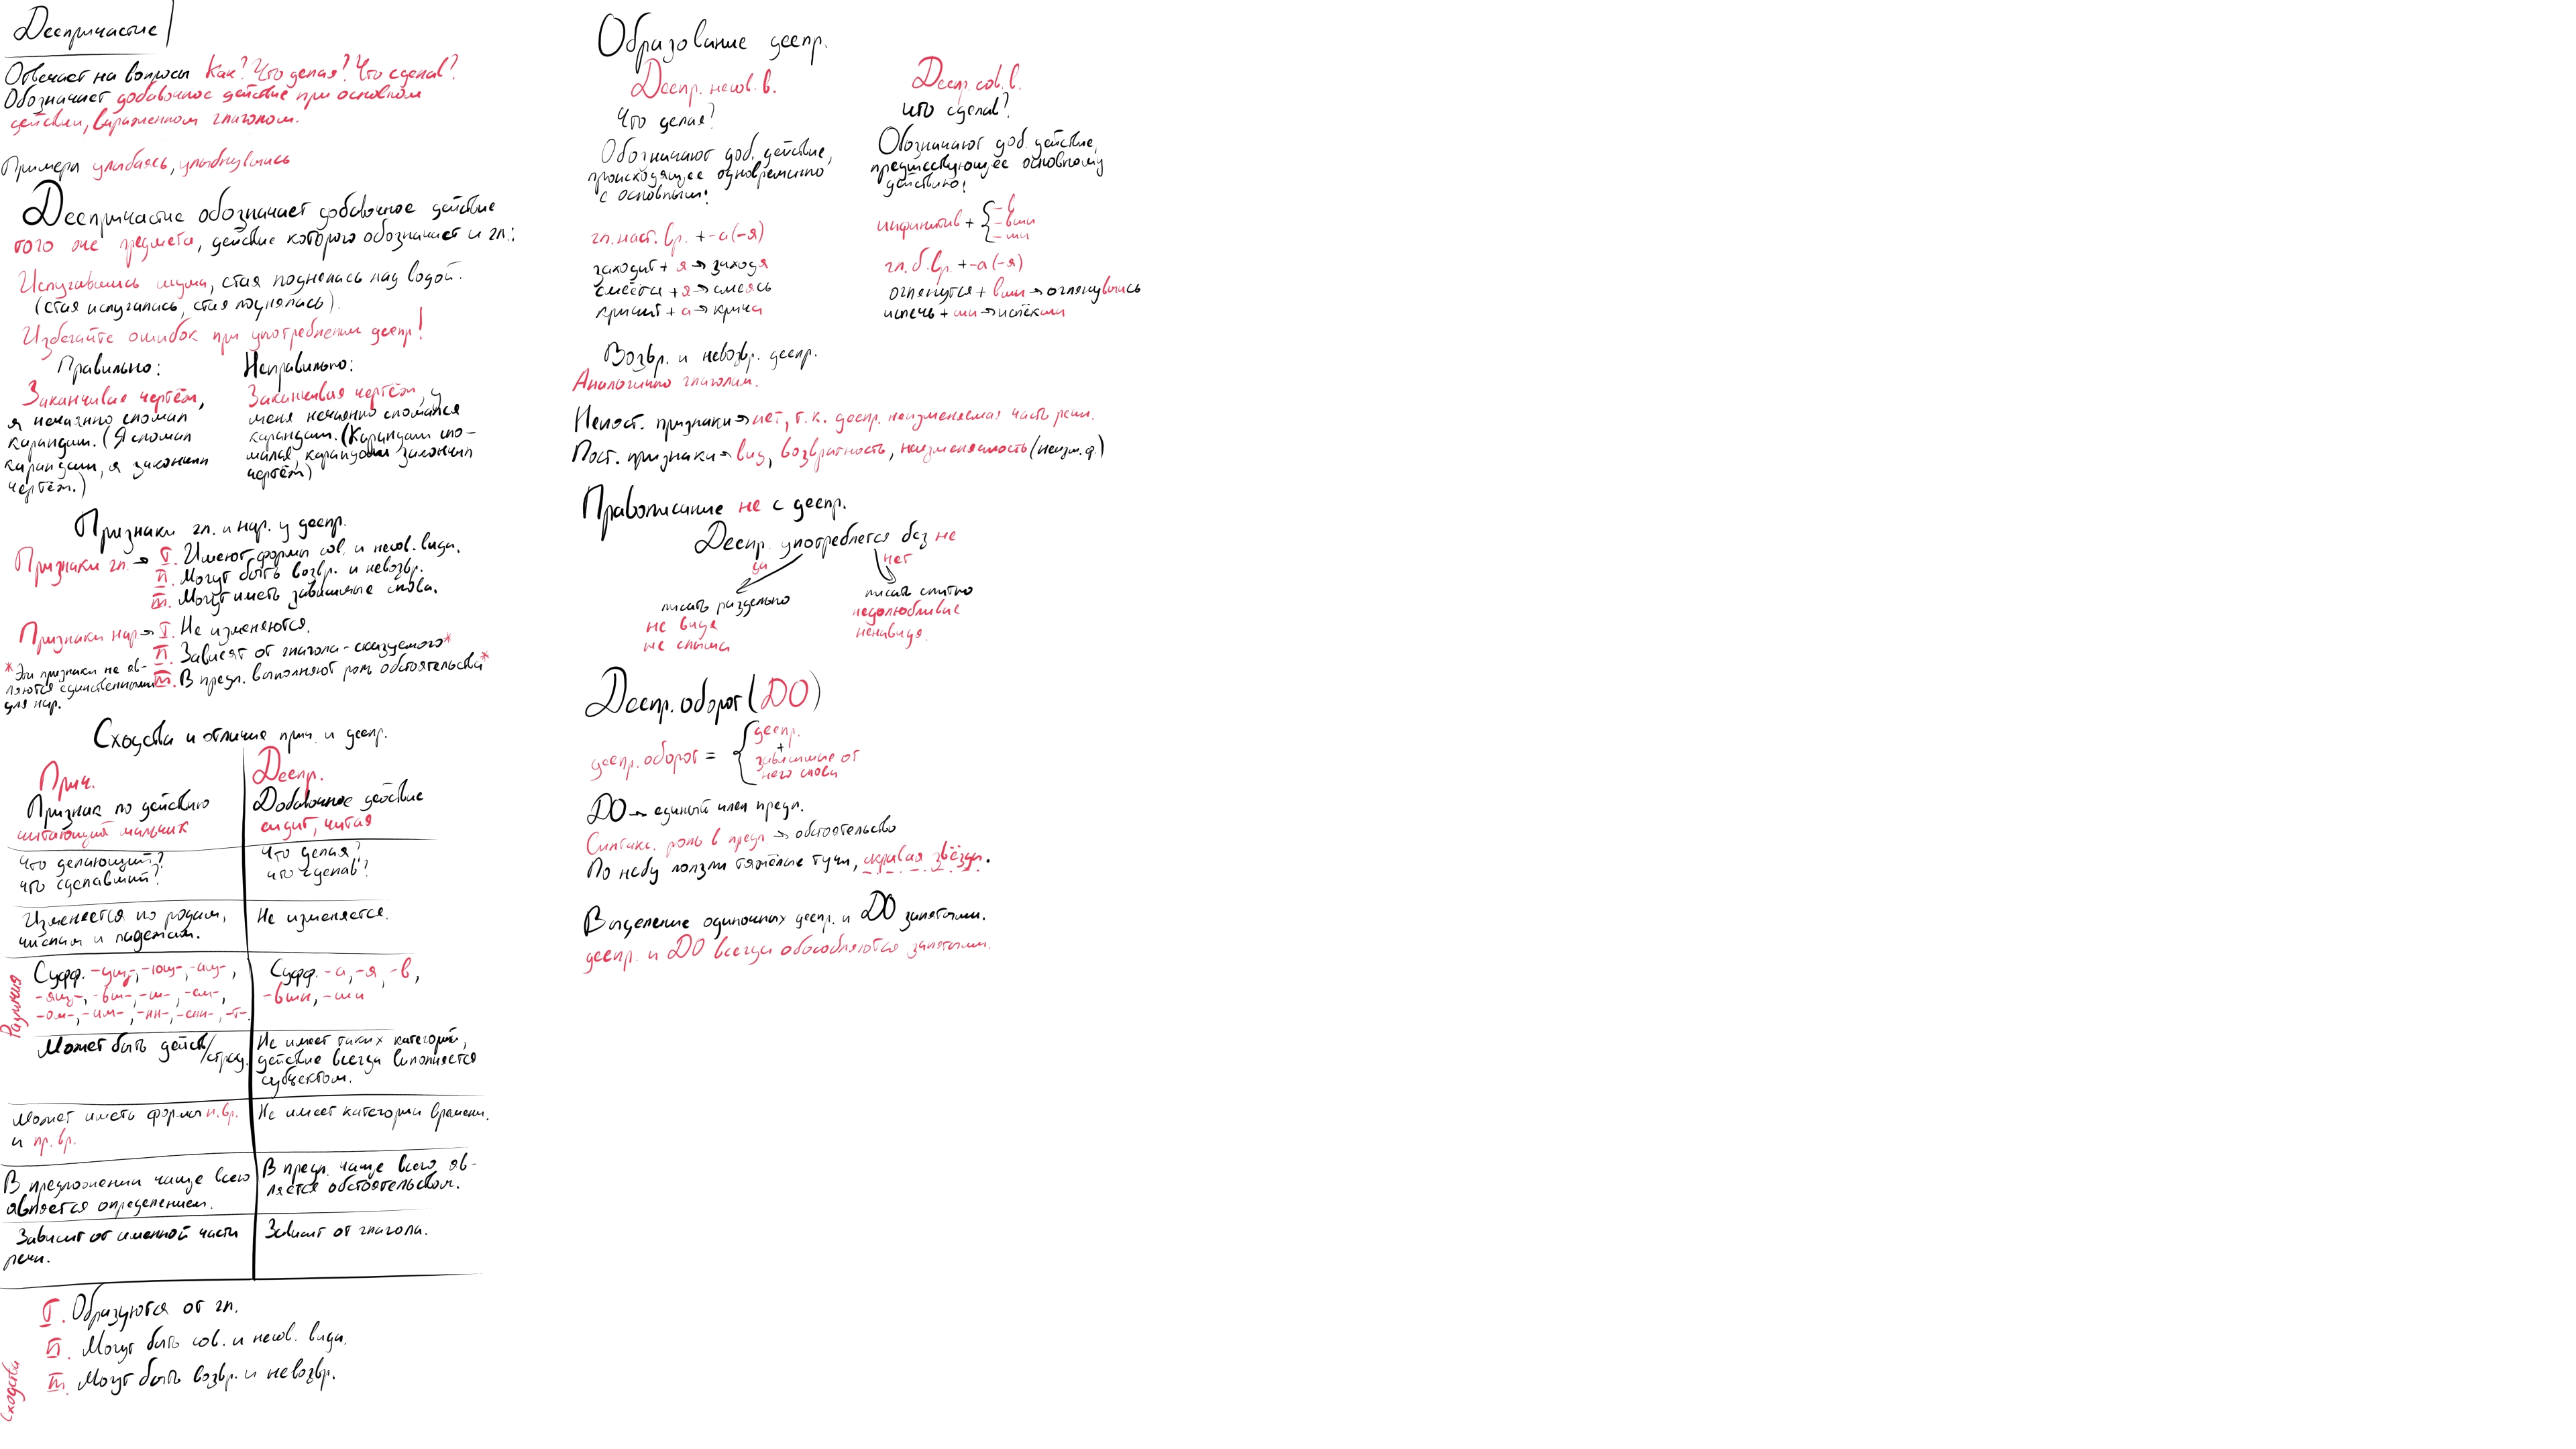 Деепричастие
Отвечает на вопросы Как? Что делая? Что сделав?
Обозначает добавочное действие при основном
действии, выраженном глаголом.
Примеры улыбаясь, улыбнувшись
Деепричастие обозначает добавочное действие
того же предмета, действие которого обозначает и гл.:
Испугавшись шума, стая поднялась над водой.
(стая испугалась, стая поднялась).
Избегайте ошибок при употреблении деепр!
Правильно:
Заканчивая чертёж,
я нечаянно сломал
карандаш. (Я сломал
карандаш, я закончил
чертёж.)
Неправильно:
Заканчивая чертёж, у
меня нечаянно сломался
карандаш. (Карандаш сло-
мался, карандаш закончил
чертёж)
Признаки гл. и нар. у деепр.
Признаки гл. → I. Имеют формы сов. и несов. вида.
II. Могут быть возвр. и невозвр.
III. Могут иметь зависимые слова.
Признаки нар → I. Не изменяются.
II. Зависят от глагола-сказуемого*
III. В предл. выполняют роль обстоятельства*
*Эти признаки не яв-
ляются единственными
для нар.
Сходства и отличие прич. и деепр.
Прич.
Деепр.
Признак по действию
читающий мальчик
Добавочное действие
сидит, читая
Что делающий?
что сделавший?
Что делая?
что сделав?
Изменяется по родам,
числам и падежам.
Не изменяется.
Различия
Суфф. -ущ-, -ющ-, -ащ-,
-ящ-, -вш-, -ш-, -ем-,
-ом-, -им-, -нн-, -енн-, -т-
Суфф. -а, -я, -в,
-вши, -ши
Может быть действ/страд.
Не имеет таких категорий,
действие всегда выполняется
субъектом.
Может иметь формы н.вр.
и пр. вр.
Не имеет категории времени.
В предложении чаще всего
является определением.
В предл. чаще всего яв-
ляется обстоятельством.
Зависит от именной части
речи.
Зависит от глагола.
Сходства
I. Образуются от гл.
II. Могут быть сов. и несов. вида.
III. Могут быть возвр. и невозвр.
Образование деепр.
Деепр. несов. в.
Что делая?
Обозначают доб. действие,
происходящее одновременно
с основным!
гл. наст. вр. + -а(-я)
заходит + я → заходя
смеётся + я → смеясь
кричит + а → крича
Деепр. сов. в.
что сделав?
Обозначают доб. действие,
предшествующее основному
действию!
инфинитив + { -в
-вши
-ши
гл. б. вр. + -а(-я)
оглянуться + вши → оглянувшись
испечь + ши → испёкши
Возвр. и невозвр. деепр.
Аналогично глаголам.
Непост. признаки → нет, т.к. деепр. неизменяемая часть речи.
Пост. признаки → вид, возвратность, неизменяемость (неизм. ф.)
Правописание не с деепр.
Деепр. употребляется без не
да
нет
писать раздельно
не видя
не слыша
писать слитно
недолюбливая
ненавидя.
Деепр. оборот (ДО)
деепр. оборот = { деепр.
+
зависимые от
него слова
ДО → единый член предл.
Синтакс. роль в предл → обстоятельство
По небу ползли тяжёлые тучи, скрывая звёзды.
Выделение одиночных деепр. и ДО запятыми.
деепр. и ДО всегда обособляются запятыми.